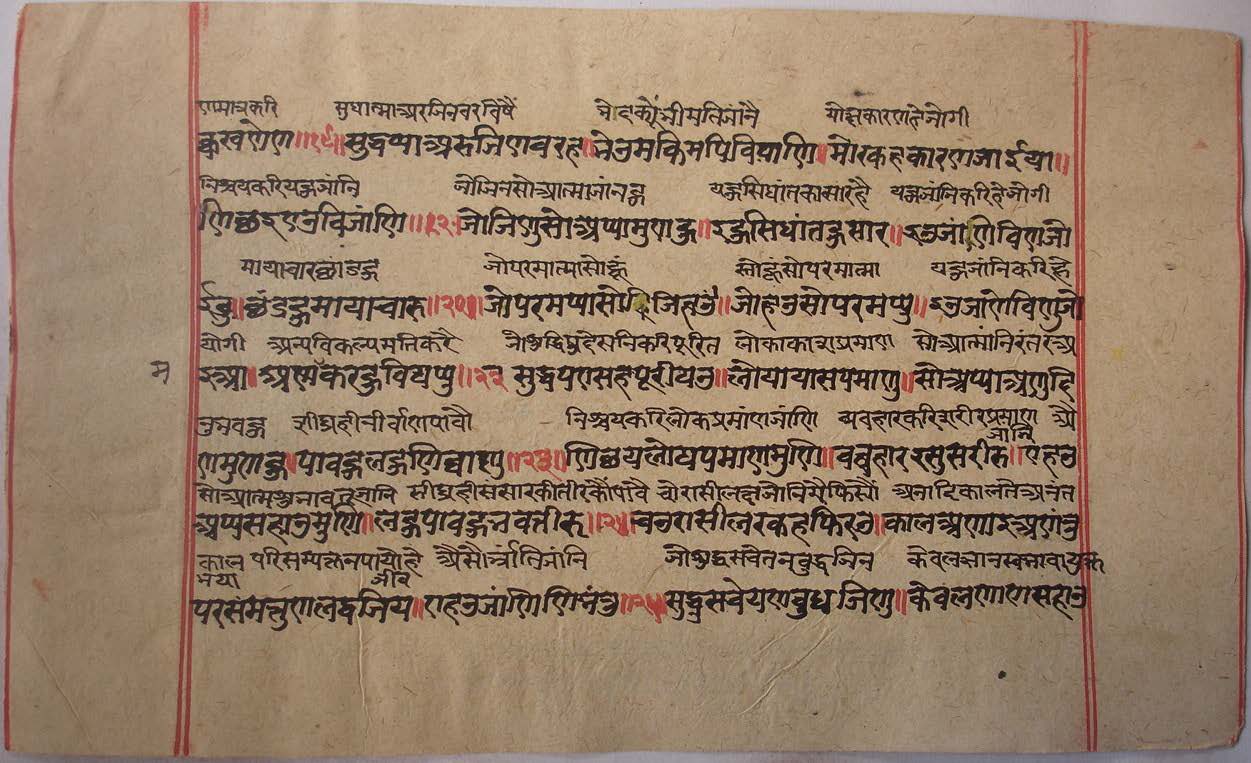 णमात्रकरि सुधात्माअरजिनवरविषैं भेदकांेनीमतिजांनै मोक्षकारणहेजोगी
क्कखणेण॥१९॥सुद्धप्पाअरुजिणवरह॥भेउमकिमपिवियाणि॥मोरकहकारणजोईया॥
निश्चयकरियहजांनि जोजिनसोआत्माजांनहु यहसिधांतकासारहै यहजांनिकरिहेजोगी
णिछइएउविजांणि॥२१॥जोजिणुसोअप्पामुणहु॥इहुसिधांतहुसार॥इउजांणेविणजो
मायाचारछांडहु जोपरमात्मासोहूं जोहूंसोपरमात्मा यहजांनिकरिहे
ईहु॥छंडहुमायाचारु॥२१॥जोपरमप्पासोजिहउं॥जोहउसोपरमप्पु॥इउजाणेविणुजो
योगी अन्यविकल्पमतिकरै जोशुद्धिप्रदेसनिकरिपूरित लोकाकाशप्रमाण सोआत्मांनिरंतरअ
म
इआ॥अण्मकरहुवियप्पु॥२२ सुद्धपएसहपूरीयउ॥लोयायासपमाणु॥सोअप्पाअणुदि
नुभवहु शीघ्रहीनीर्वाणपावौ निश्चयकरिलोकप्रमांणजांणि व्यवहारकरिशरीरप्रमाण
जांनि
णमुणहु॥पावहुलहुणिव्वाणु॥२३॥णिछयलोयपमाणमुणि॥ववुहारइसुसरीरु॥एहउ
सोआत्मसुभाव सीघ्रहीसंसारकीतीरकौंपावै चौरासीलक्षजोनिमैफिस्यौं अनादिकालतैअनंत
अप्पसहाउमुणि॥लहुपावहुभवतीरु॥२४॥चउरासीलरकहफिरउ॥कालअणाइअणंतु
काल परिसम्यक्तनपायौहै अैसैंभ्रांतिजांनि जोशुद्धसचेतनबुद्धजिन केवलज्ञानस्वभावायुक्त
भया जीव
परसंमत्तुणलद्धजिय॥एहउजांणिणिभंतु॥२५॥सुद्धुसचेयणबुधजिणु॥केवलणाणसहाउ